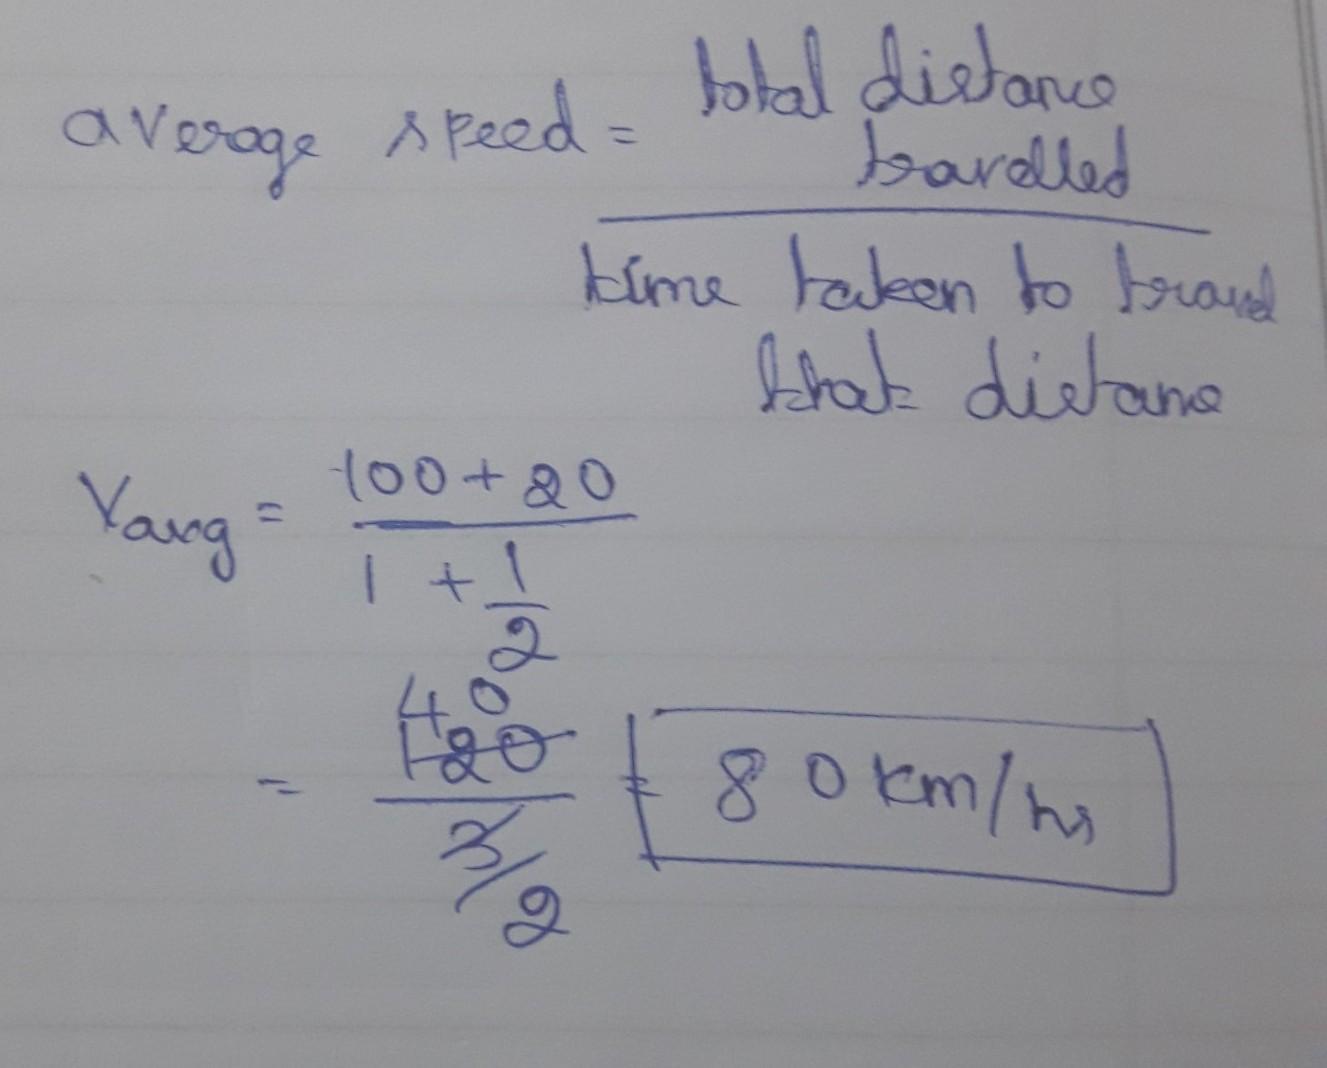 average speed = total distance
travelled
time taken to travel
that distance
Vavg = 100 + 20
1 + 1
2
40
= 120 = 80 km/hr
3/2